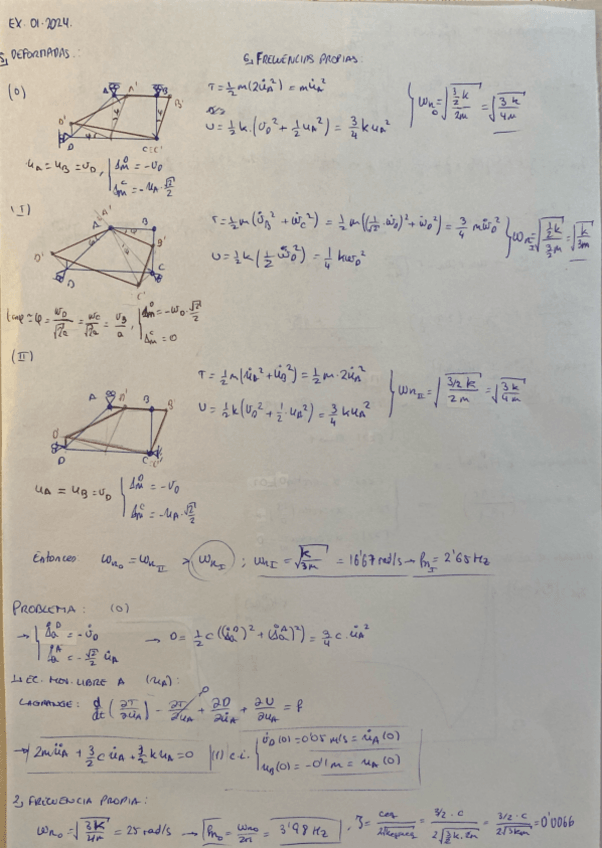 EX. 01.2024.
5, DEFORMADAS:
6, FRECUENCIAS PROPIAS.
(0)
A A' B'
D' D C≡C'
T = 1/2 m(2u̇_A²) = m u̇_A²
U = 1/2 k·(v_D² + 1/2 u_A²) = 3/4 k u_A²
ω_n0 = √(3/2 k / 2m) = √(3k/4m)
u_A = u_B = v_D, { Δ_m^D = -v_D
Δ_m^C = -u_A·√2/2
(I)
A' B B'
D' D C C'
T = 1/2 m(v̇_B² + ẇ_C²) = 1/2 m((1/√2 ẇ_D)² + ẇ_D²) = 3/4 m ẇ_D²
U = 1/2 k(1/2 w_D²) = 1/4 k w_D²
= √(k/3m)
φ = w_D/√2a = w_C/√2a = v_B/a, { Δ_m^D = -w_D·√2/2
Δ_m^C = 0
(II)
A A' B B'
D C≡C'
T = 1/2 m(u̇_A² + u̇_B²) = 1/2 m·2u̇_A²
U = 1/2 k(v_D² + 1/2·u_A²) = 3/4 k u_A²
ω_nII = √(3/2 k / 2m) = √(3k/4m)
u_A = u_B = v_D { Δ_m^D = -v_D
Δ_m^C = -u_A·√2/2
Entonces ω_n0 = ω_nII > ω_nI ; ω_nI = √(k/3m) = 16'67 rad/s → f_nI = 2'65 Hz
PROBLEMA: (0)
→ { Δ̇_a^D = -v̇_D
Δ̇_a^A = -√2/2 u̇_A
→ D = 1/2 c((Δ̇_a^D)² + (Δ̇_a^A)²) = c·u̇_A²
1, EC. MOV. LIBRE A (u_A):
LAGRANGE: d/dt(∂T/∂u̇_A) - ∂T/∂u_A + ∂D/∂u̇_A + ∂U/∂u_A = f
→ 2mü_A + 3/2 c u̇_A + 3/2 k u_A = 0 (1) c.i. { v̇_D(0) = 0'05 m/s = u̇_A(0)
u_B(0) = -0'1 m = u_A(0)
2, FRECUENCIA PROPIA:
ω_n0 = √(3k/4m) = 25 rad/s → f_n0 = ω_n0/2π = 3'98 Hz, ζ = = 3/2·c / 2√(3/2 k·2m) = 3/2·c / 2√(3km) = 0'0066